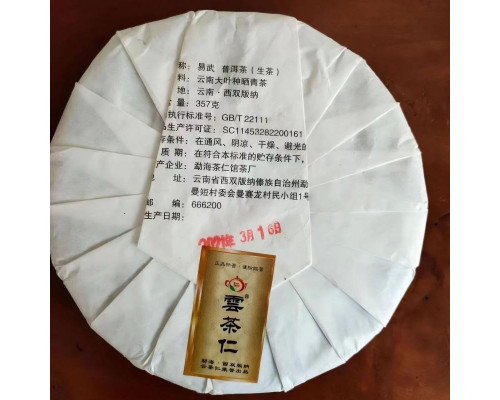 称：易武 普洱茶（生茶）
料：云南大叶种晒青茶
地：云南·西双版纳
量：357克
执行标准号：GB/T 22111
品生产许可证：SC11453282200161
存条件：在通风、阴凉、干燥、避光的
质 期：在符合本标准的贮存条件下，
产企业：勐海茶仁馆茶厂
址：云南省西双版纳傣族自治州勐
曼短村委会曼赛龙村民小组1号
邮 编：666200
生产日期：
3月16日
仁
雲茶仁
勐海·西双版纳